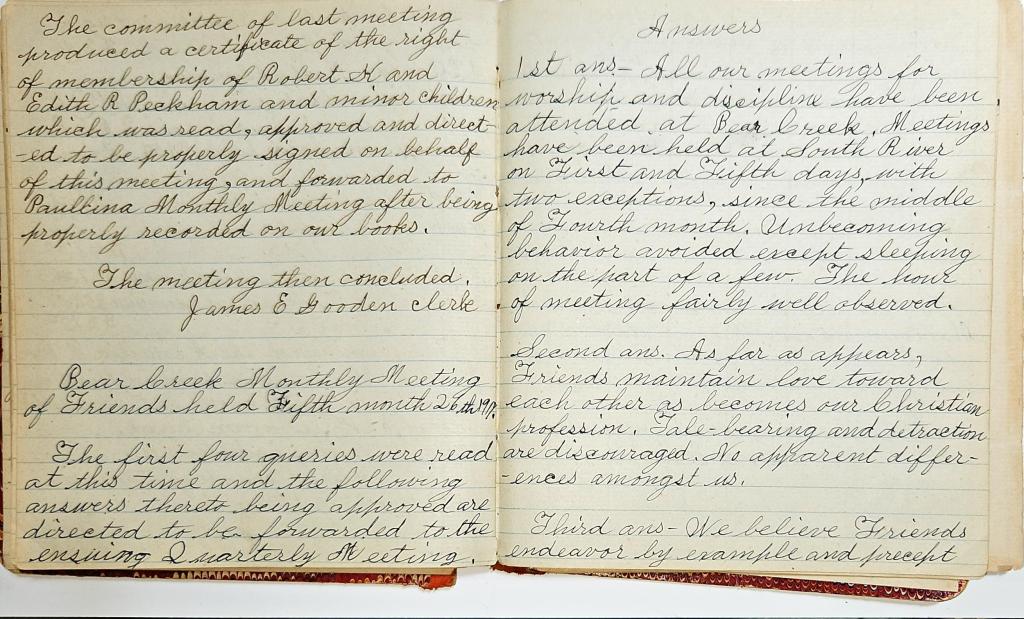 The committee of last meeting
produced a certificate of the right
of membership of Robert H and
Edith R Peckham and minor children
which was read, approved and direct-
-ed to be properly signed on behalf
of this meeting, and forwarded to
Paullina Monthly Meeting after being
properly recorded on our books.
The meeting then concluded.
James E Gooden clerk
Bear Creek Monthly Meeting
of Friends held Fifth month 26th
The first four queries were read
at this time and the following
answers thereto being approved are
directed to be forwarded to the
ensuing Quarterly Meeting.
Answers
1st ans- All our meetings for
worship and discipline have been
attended at Bear Creek. Meetings
have been held at South River
on First and Fifth days, with
two exceptions, since the middle
of Fourth month. Unbecoming
behavior avoided except sleeping
on the part of a few. The hour
of meeting fairly well observed.
Second ans. As far as appears,
Friends maintain love toward
each other as becomes our Christian
profession. Tale-bearing and detraction
are discouraged. No apparent differ-
-ences amongst us.
Third ans- We believe Friends
endeavor by example and precept